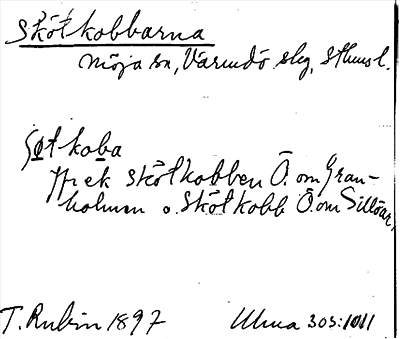 Skötkobbarna
Möja sn, Värmdö skg, Sthmsl.
Søtkoba
Jfr ek Skötkobben Ö. om Gran-
holmen o. Skötkobb Ö om Sillöar,
T. Rubin 1897 Ulma 303:1011